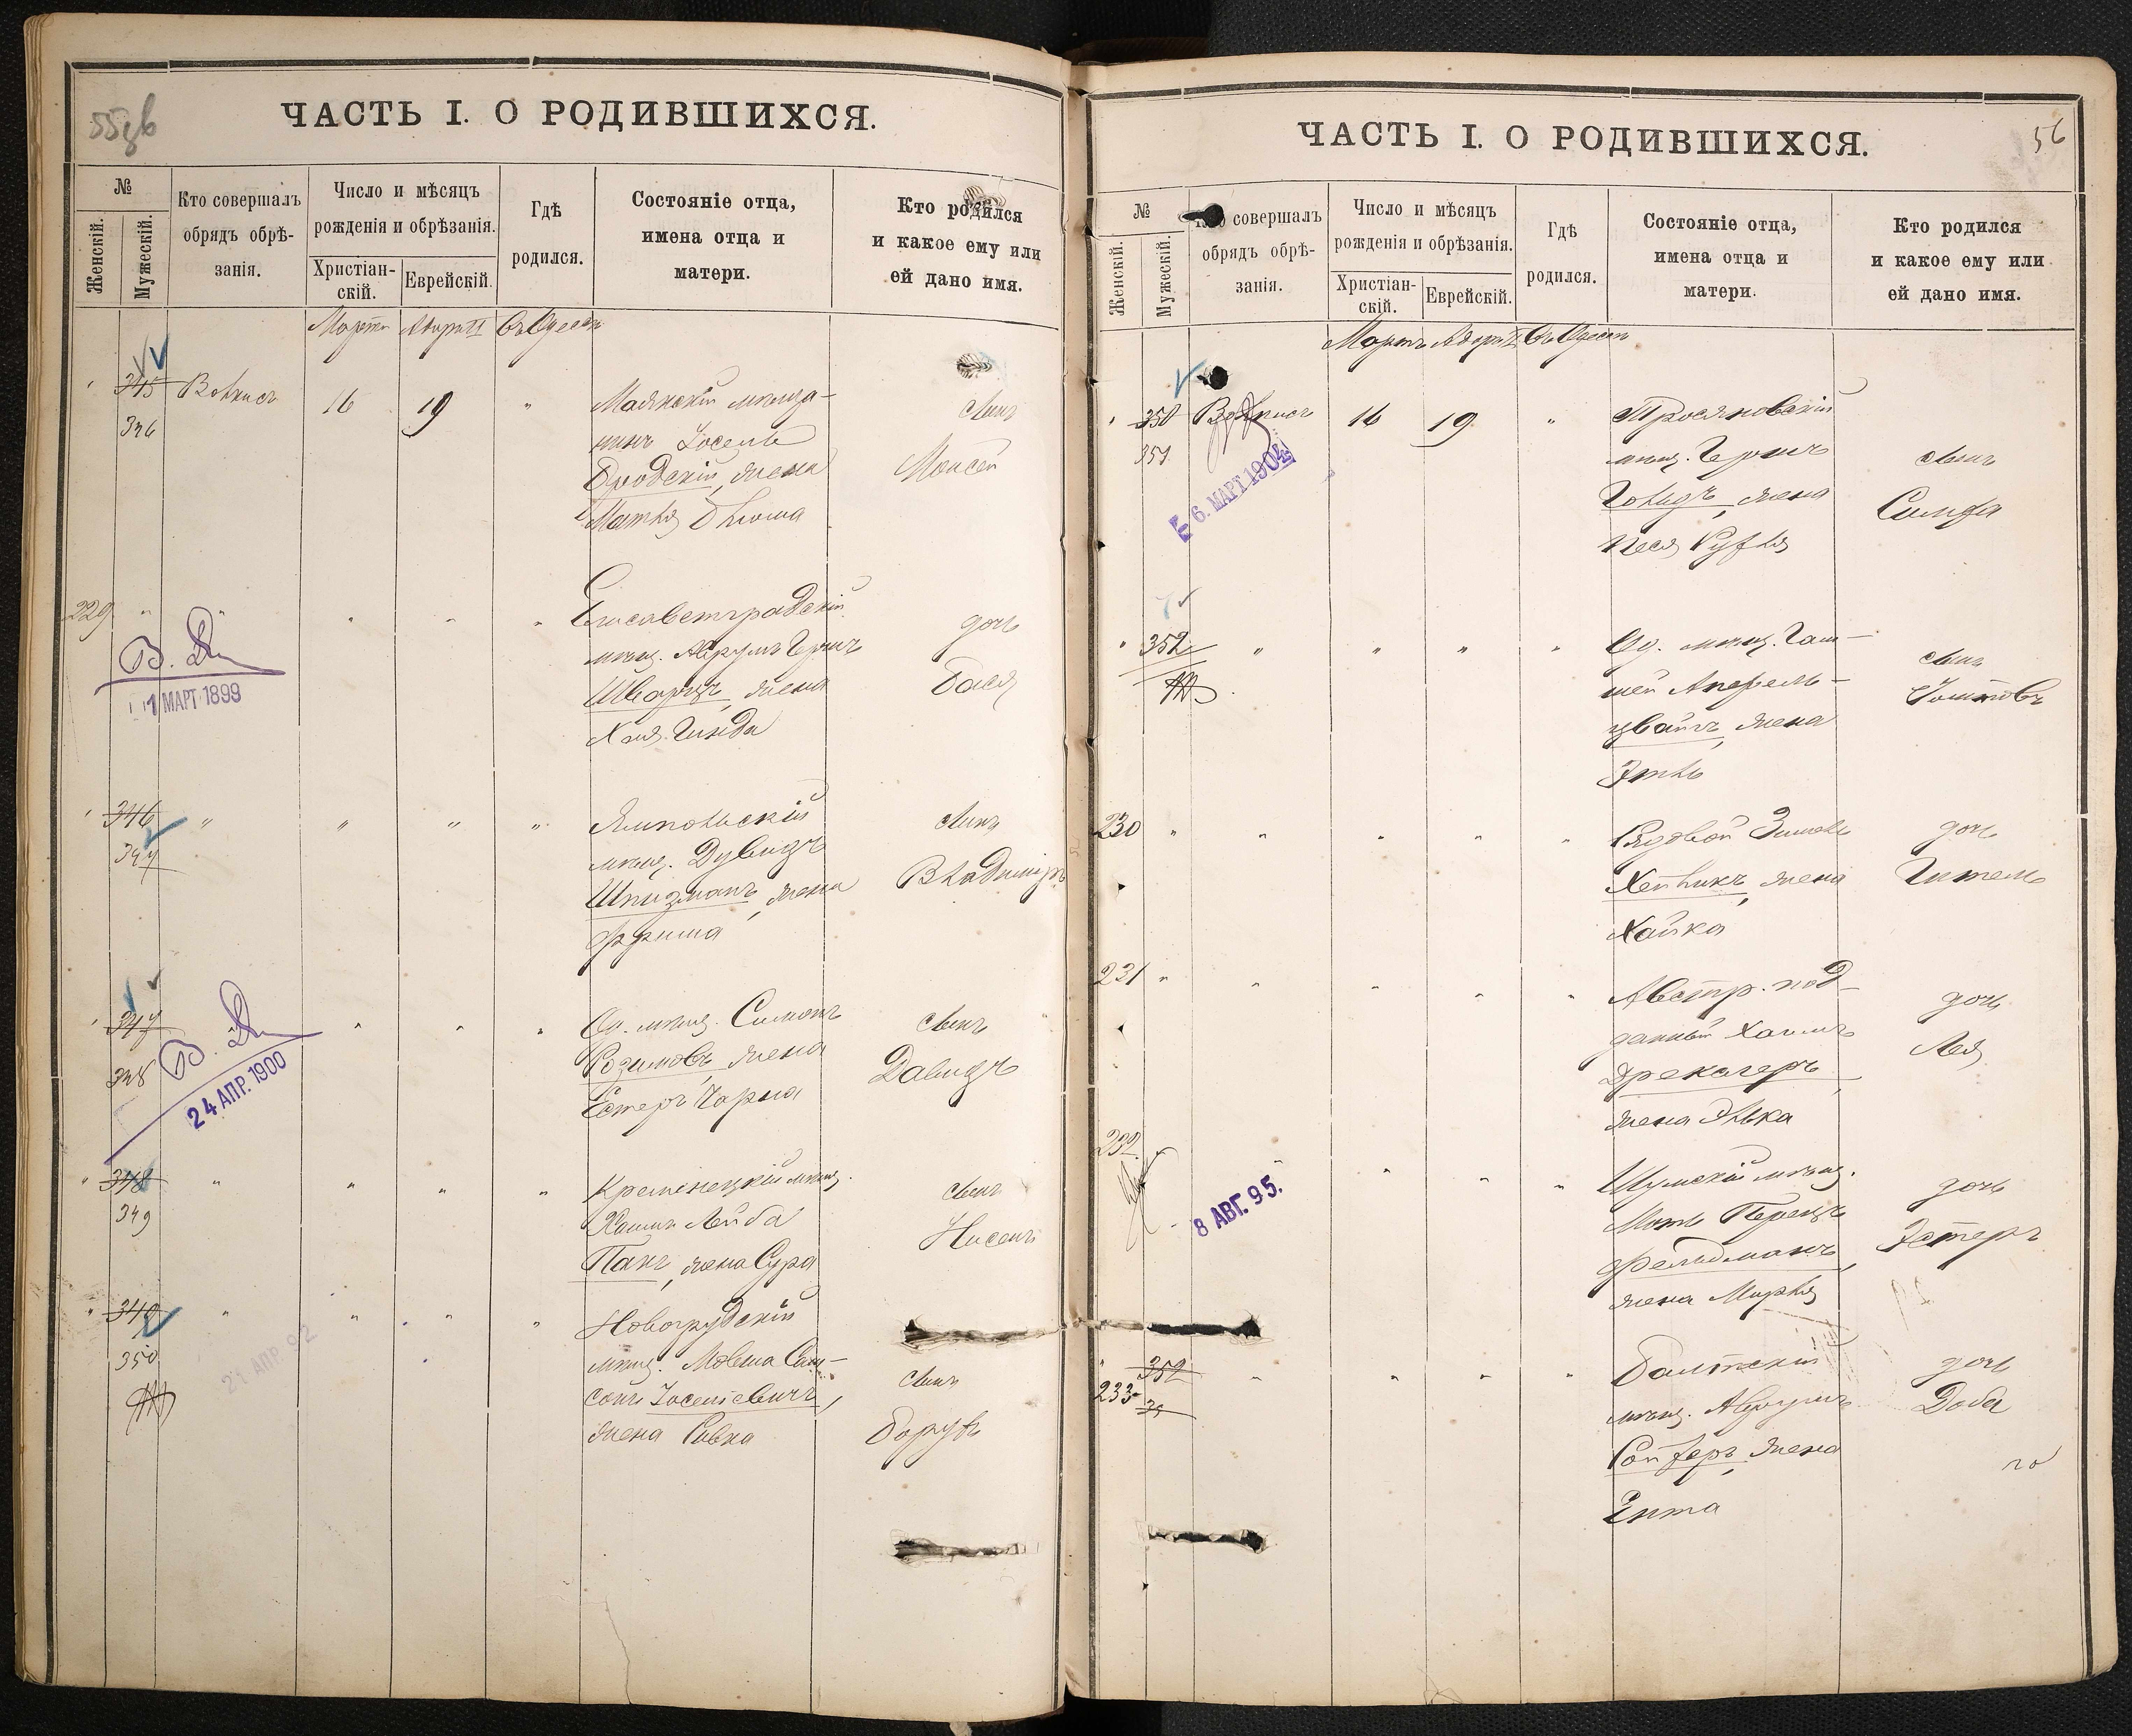 55 об
ЧАСТЬ I. О РОДИВШИХСЯ.
№
Женскій.
Мужескій.
Кто совершалъ
обрядъ обрѣ-
занія.
Число и мѣсяцъ
рожденія и обрѣзанія.
Христіан-
скій.
Еврейскій.
Гдѣ
родился.
Состояніе отца,
имена отца и
матери.
Кто родился
и какое ему или
ей дано имя.
Мартъ Адаръ II Въ Одессѣ
" 345 16 19 " Маякскій мѣща-
346
нинъ Іосель
Бродскій, жена
Матля
сынъ
Моисей
229 " " " " " Елисаветградскій
мѣщ. Абрумъ Гершъ
Шварцъ, жена
Хая Гинда
дочь
Бася
1 МАРТ 1899
" 346 " " " " Ямпольскій
347
мѣщ. Дувидъ
Шпизманъ, жена
Фрима
сынъ
Владиміръ
" 347 " " " " Од. мѣщ. Симонъ
348
Розимовъ, жена
Естеръ Чарна
сынъ
Давидъ
24 АПР. 1900
" 348 " " " " Кременецкій мѣщ.
349
Хаимъ Лейба
Пакъ, жена Сура
сынъ
Нисенъ
" 349 " " " " Новогрудскій
350
мѣщ. Мовша Сам-
сонъ Іоселевичъ,
жена Ривка
сынъ
Борухъ
21 АПР. 92
56
ЧАСТЬ I. О РОДИВШИХСЯ.
№
Женскій.
Мужескій.
совершалъ
обрядъ обрѣ-
занія.
Число и мѣсяцъ
рожденія и обрѣзанія.
Христіан-
скій.
Еврейскій.
Гдѣ
родился.
Состояніе отца,
имена отца и
матери.
Кто родился
и какое ему или
ей дано имя.
Мартъ Адаръ II Въ Одессѣ
" 350 16 19 " Трояновскій
351
мѣщ. Гершъ
Гольдъ, жена
Песя Рухля
сынъ
Симха
6. МАРТ 1904
" 352 " " " " Од. мѣщ. Гам-
шей Апфель-
цвайгъ, жена
Этль
сынъ
Іомтовъ
230 " " " " " Рядовой Зимель
Хейликъ, жена
Хайка
дочь
Гитель
231 " " " " " Австр. под-
данный Хаимъ
Дрекслеръ,
жена Элька
дочь
Лея
232 " " " " Шумскій мѣщ.
Моть Перецъ
Фельдманъ,
жена Мирля
дочь
Эстеръ
8 АВГ. 95.
" 352 " " " " Балтскій
233
мѣщ. Абрумъ
Сойферъ, жена
Ента
дочь
Доба